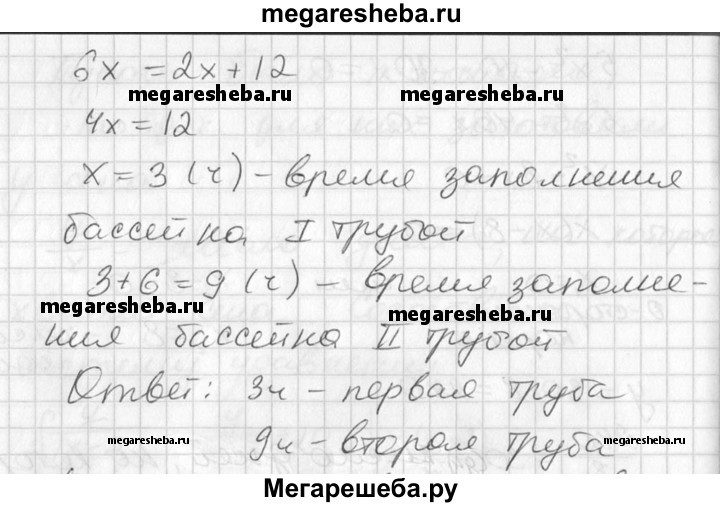 megaresheba.ru
6x = 2x + 12
megaresheba.ru megaresheba.ru
4x = 12
x = 3 (ч) – время заполнения
бассейна I трубой
3 + 6 = 9 (ч) – время заполне-
megaresheba.ru megaresheba.ru
ния бассейна II трубой
Ответ: 3ч – первая труба
megaresheba.ru 9ч – вторая труба megaresheba.ru
Мегарешеба.ру